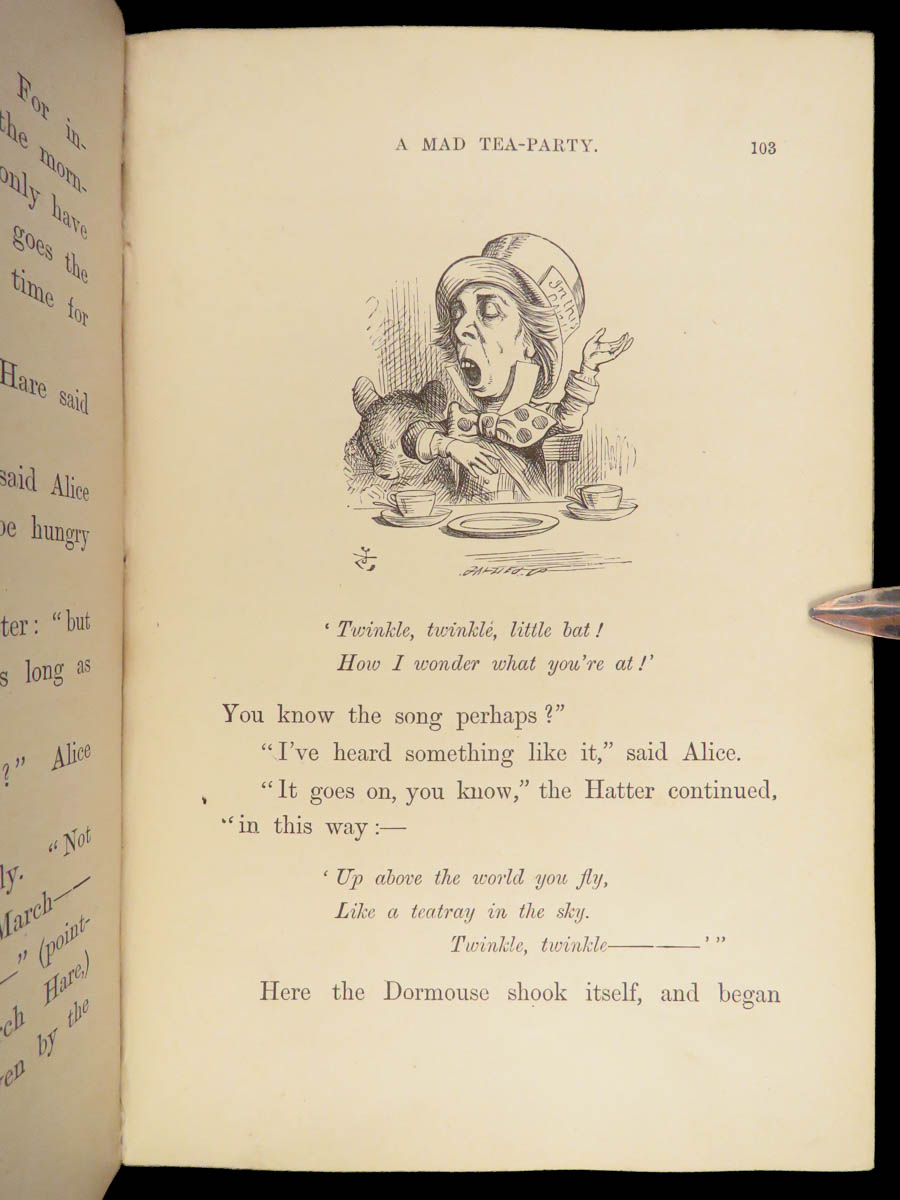 For in-
the morn-
only have
goes the
time for
Hare said
said Alice
be hungry
"but
long as
?" Alice
"Not
March——
—" (point-
Hare,)
by the
A MAD TEA-PARTY. 103
In this
'Twinkle, twinkle, little bat!
How I wonder what you're at!'
You know the song perhaps?"
"I've heard something like it," said Alice.
"It goes on, you know," the Hatter continued,
"in this way:—
'Up above the world you fly,
Like a teatray in the sky.
Twinkle, twinkle————'"
Here the Dormouse shook itself, and began